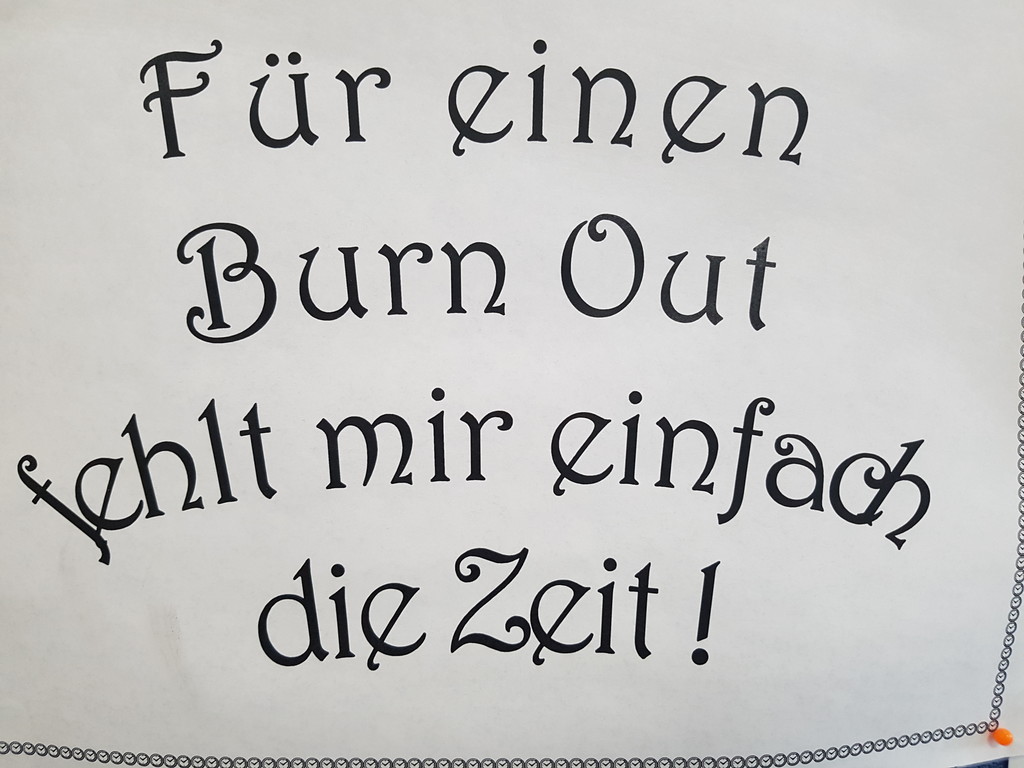 Für einen
Burn Out
fehlt mir einfach
die Zeit !